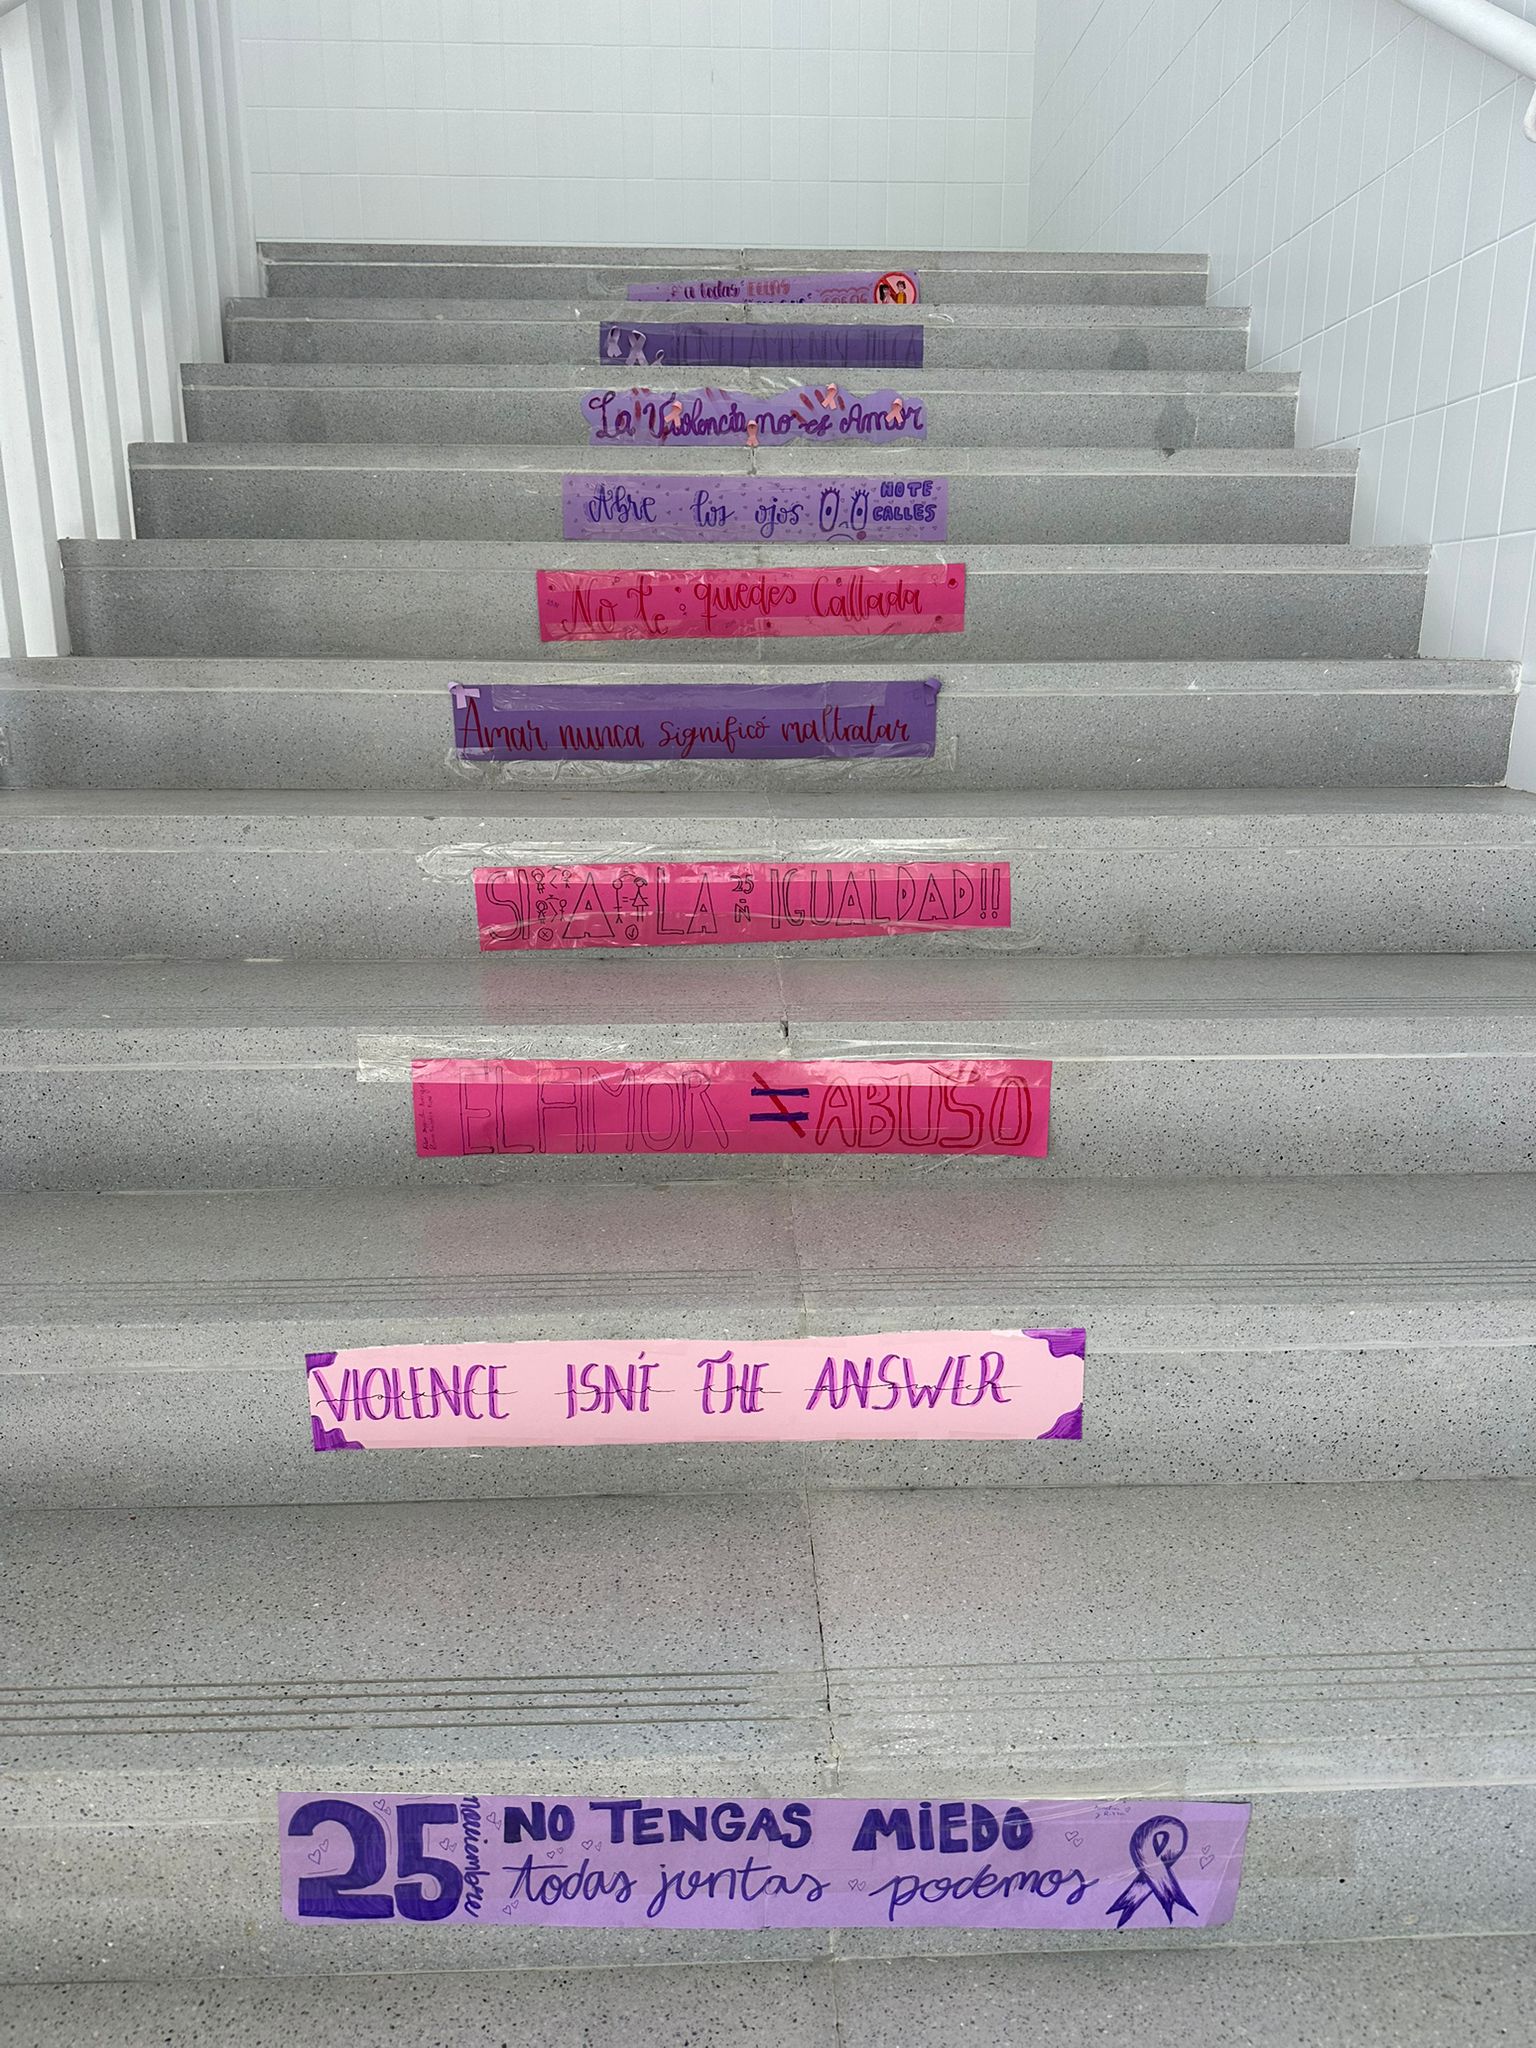 a todas ELLAS
La Violencia no es Amor
Abre los ojos
NO TE
CALLES
No te quedes Callada
Amar nunca significó maltratar
SI A LA 25 N IGUALDAD!!
EL AMOR ≠ ABUSO
VIOLENCE ISN'T THE ANSWER
25 noviembre
NO TENGAS MIEDO
todas juntas podemos